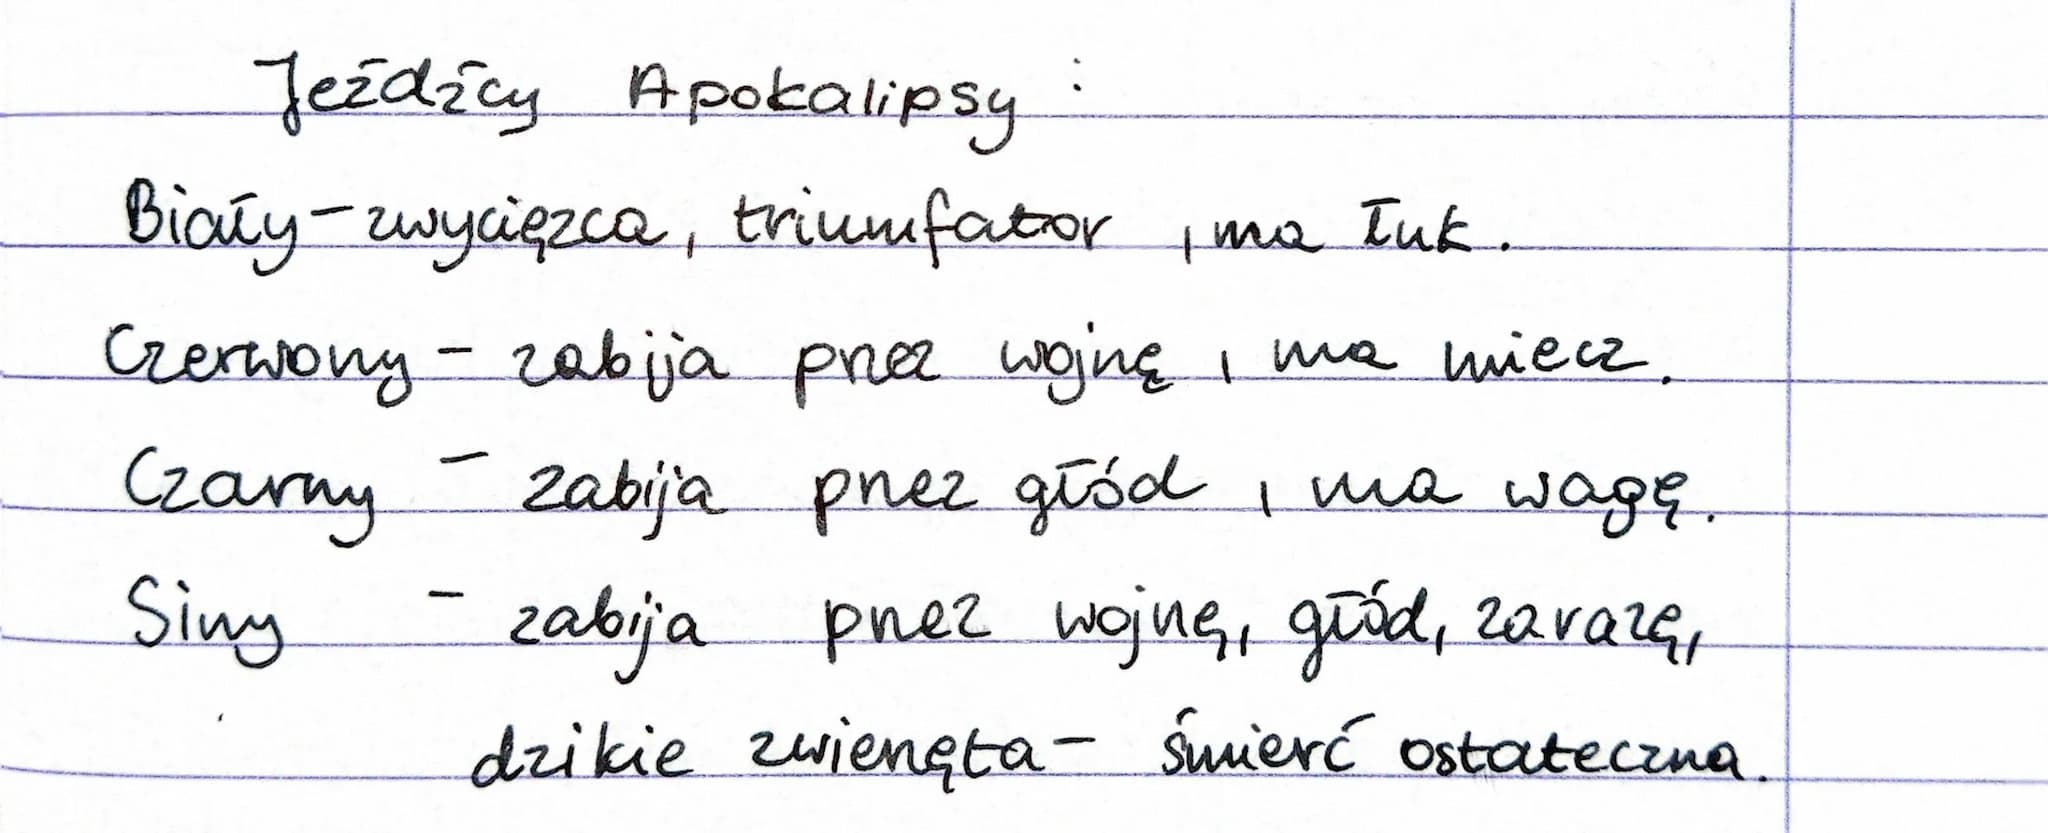 Jeźdźcy Apokalipsy:
Biały - zwycięzca, triumfator, ma łuk.
Czerwony - zabija przez wojnę, ma miecz.
Czarny - zabija przez głód, ma wagę.
Siny - zabija przez wojnę, głód, zarazę,
dzikie zwierzęta - śmierć ostateczna.